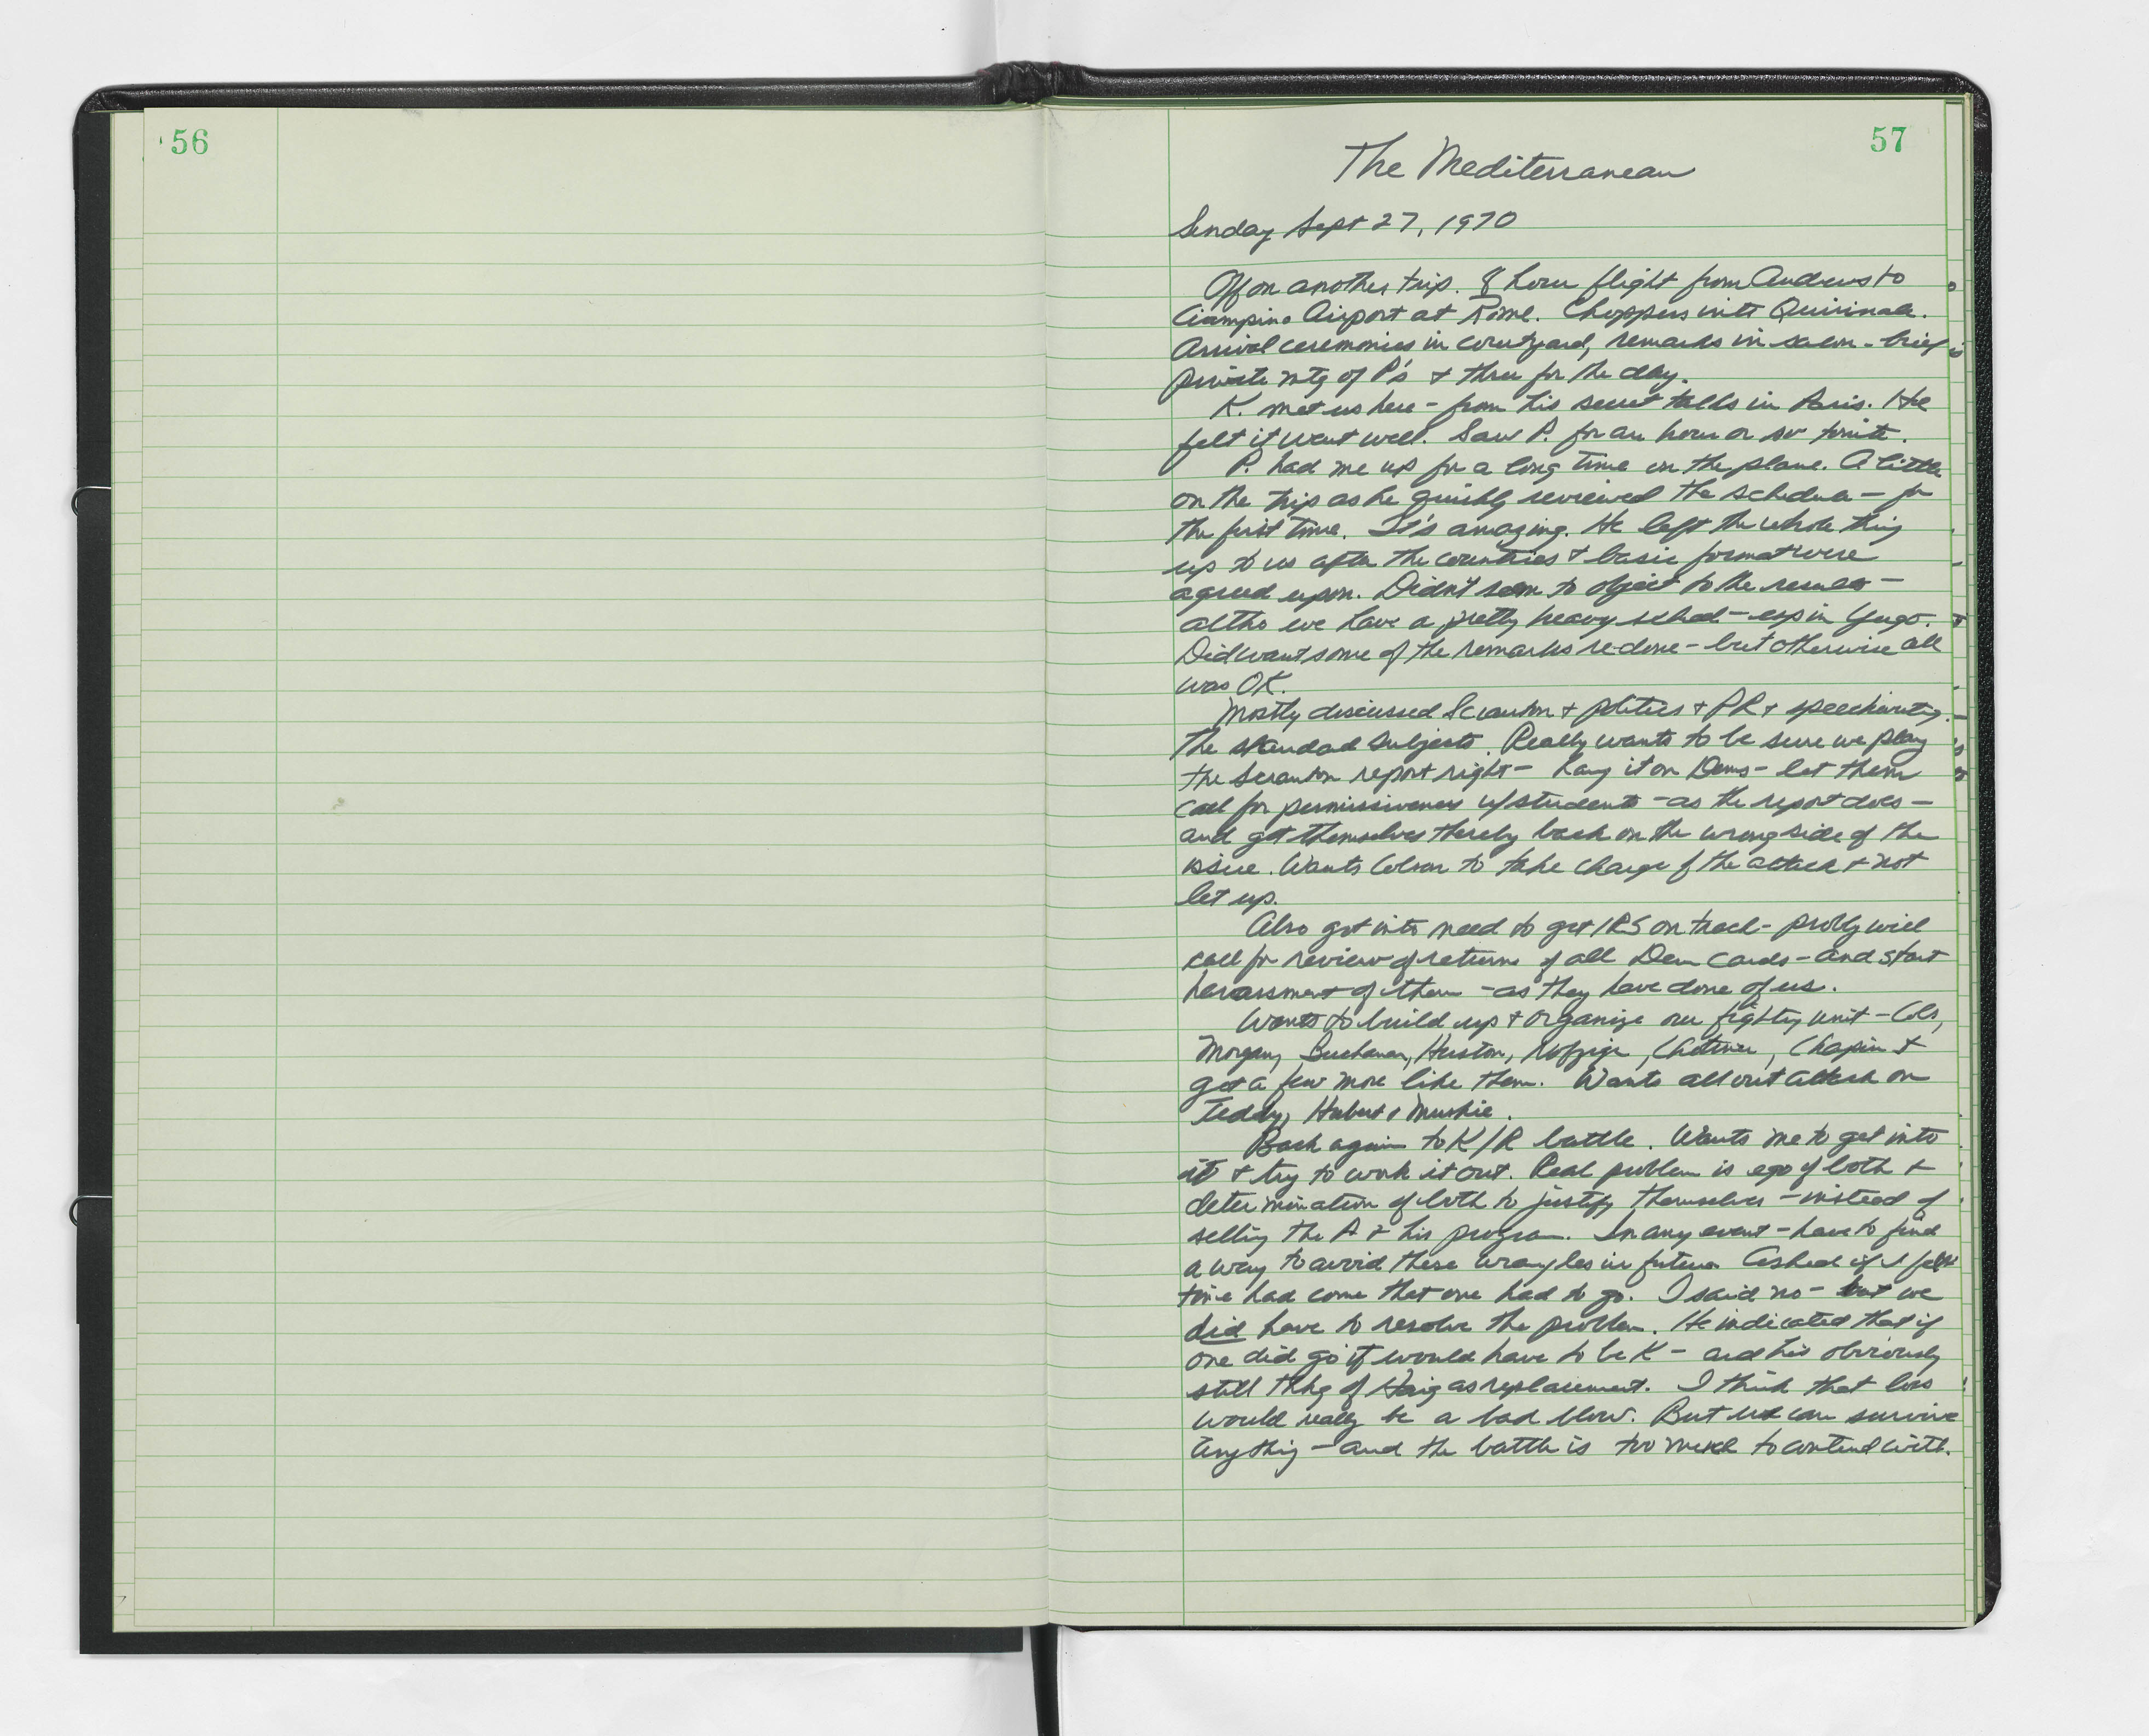 56
57
The Mediterranean
Sunday Sept 27, 1970
Off on another trip. 8 hour flight from Andrews to
Ciampino Airport at Rome. Choppers into Quirinale.
Arrival ceremonies in courtyard, remarks in salon - brief
private mtg of P's & thru for the day.
K. met us here - from his secret talks in Paris. He
felt it went well. Saw P. for an hour or so tonite.
P. had me up for a long time on the plane. A little
on the trip as he quickly reviewed the schedule - for
the first time. It's amazing. He left the whole thing
up to us after the countries & basic format were
agreed upon. Didn't seem to object to the results -
altho we have a pretty heavy sched - esp in Yugo.
Did want some of the remarks re-done - but otherwise all
was OK.
Mostly discussed Scranton & politics & PR & speechwriting.
The standard subjects. Really wants to be sure we play
the Scranton report right - hang it on Dems - let them
call for permissiveness w/students - as the report does -
and get themselves thereby back on the wrong side of the
issue. Wants Colson to take charge of the attack & not
let up.
Also got into need to get IRS on track - probly will
call for review of returns of all Dem cands - and start
harassment of them - as they have done of us.
Wants to build up & organize our fighting unit - Cols,
Morgan, Buchanan, Huston, Nofziger, Chotiner, Chapin &
get a few more like them. Wants all out attack on
Teddy, Hubert & Muskie.
Back again to K/R battle. Wants me to get into
it & try to work it out. Real problem is ego of both &
determination of both to justify themselves - instead of
selling the P & his program. In any event - have to find
a way to avoid these wrangles in future. Asked if I felt
time had come that one had to go. I said no - but we
did have to resolve the problem. He indicated that if
one did go it would have to be K - and he's obviously
still thkg of Haig as replacement. I think that loss
would really be a bad blow. But we can survive
anything - and the battle is too much to contend with.